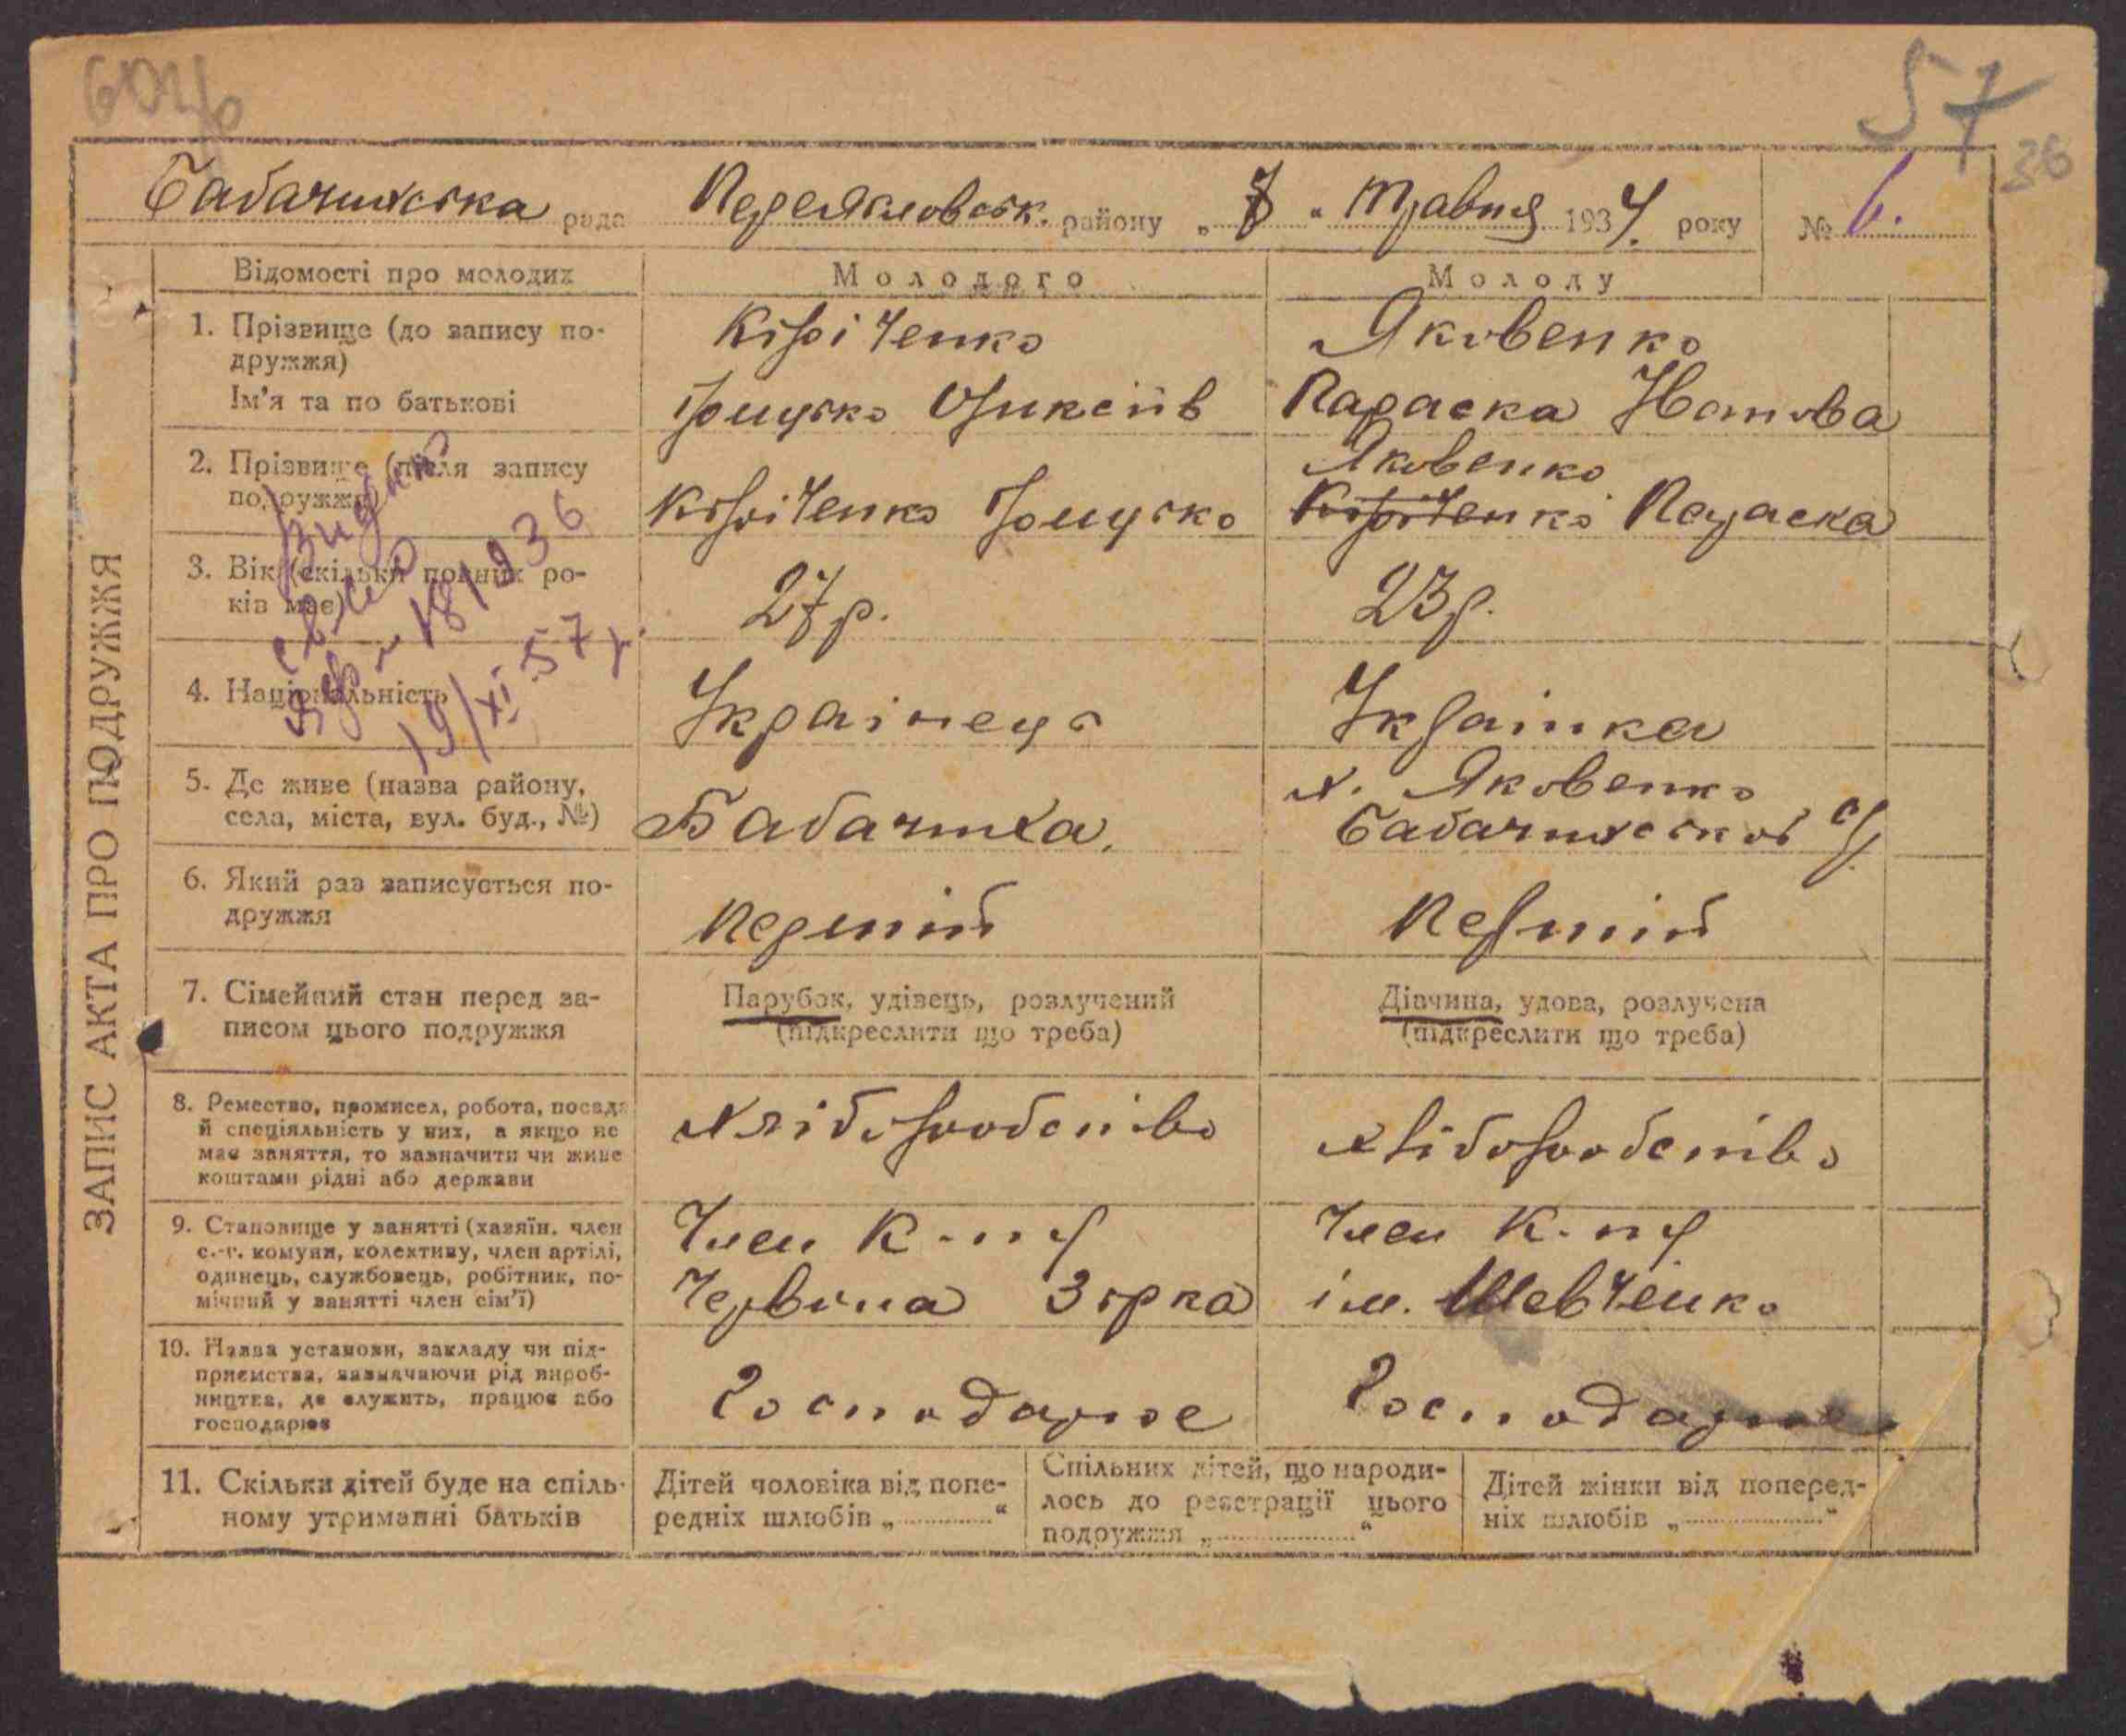 57
36
Бабачихська рада Переяславськ. району „ 7 “ травня 1934 року № 6.
Відомості про молодих Молодого Молоду
1. Прізвище (до запису по-
дружжя)
Кириченко Яковенко
Ім'я та по батькові Параска
2. Прізвище (після запису
подружжя)
Яковенко
Кириченко Кириченко Параска
3. Вік (скільки повних ро-
ків має)
27р. 23р.
4. Національність Українець Українка
5. Де живе (назва району,
села, міста, вул. буд., №)
х. Яковенко
Бабачиха. Бабачихської с/р
6. Який раз записується по-
дружжя
Перший Перший
7. Сімейний стан перед за-
писом цього подружжя
Парубок, удівець, розлучений
(підкреслити що треба)
Дівчина, удова, розлучена
(підкреслити що треба)
8. Ремество, промисел, робота, посада
й спеціяльність у них, а якщо не
має заняття, то зазначити чи живе
коштами рідні або держави
Хліборобство Хліборобство
9. Становище у занятті (хазяїн. член
с.-г. комуни, колективу, член артілі,
одинець, службовець, робітник, по-
мічний у занятті член сім'ї)
Член к-пу Член к-пу
Червона Зорка ім. Шевченко
10. Назва установи, закладу чи під-
приємства, зазначаючи рід вироб-
ництва, де служить, працює або
господарює
Господарює Господарює
11. Скільки дітей буде на спіль-
ному утриманні батьків
Дітей чоловіка від попе-
редніх шлюбів „ “
Спільних дітей, що народи-
лось до реєстрації цього
подружжя „ “
Дітей жінки від поперед-
ніх шлюбів „ “
ЗАПИС АКТА ПРО ПОДРУЖЖЯ
Видано
181936
19/XI 57 р.